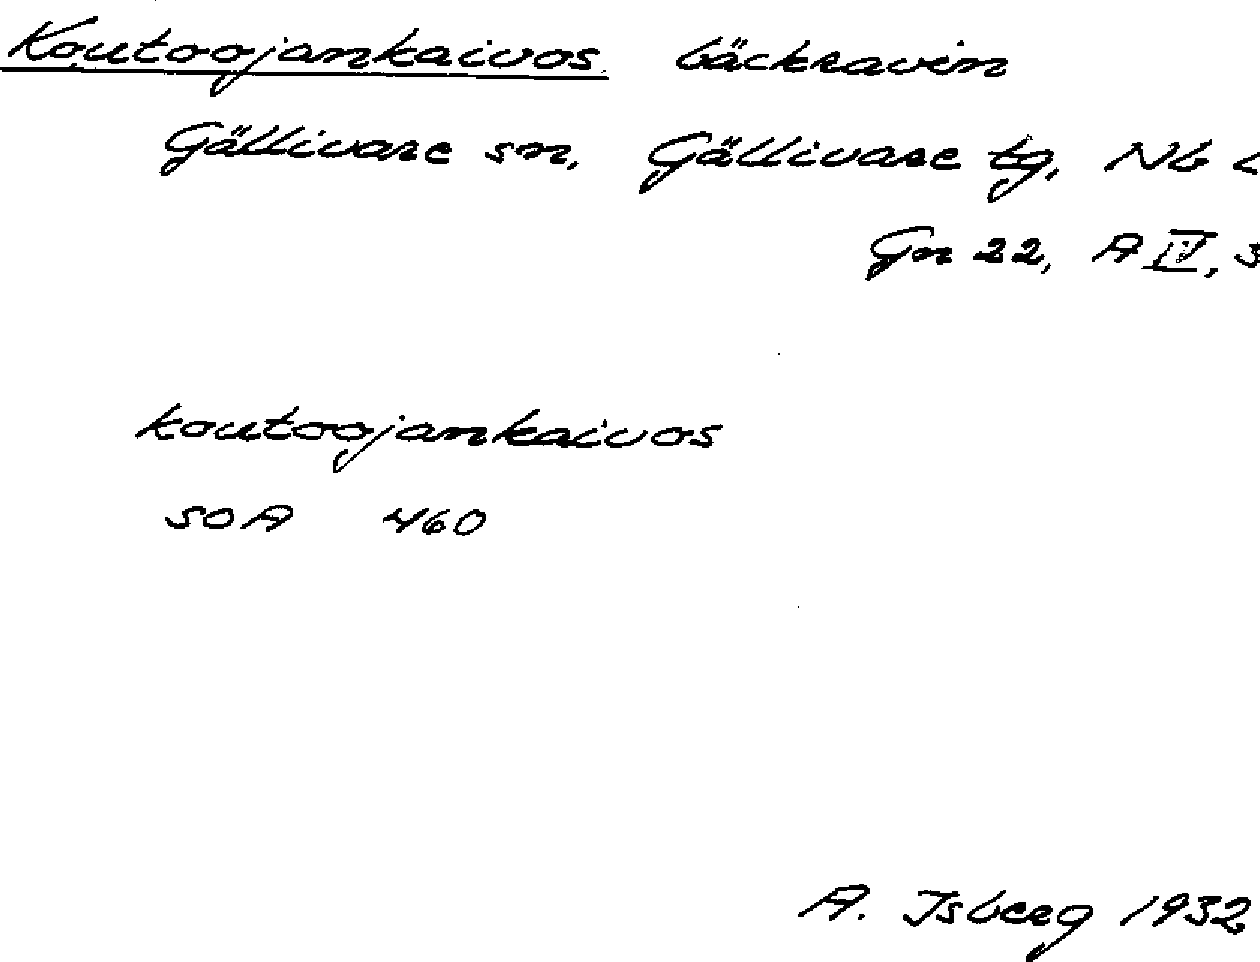 Koutoojankaivos bäckravin
Gällivare sn, Gällivare tg, Nb
Gn 22, A IV, 3
koutoojankaivos
SOA 460
A. Isberg 1932